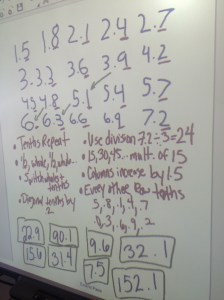 1.5 1.8 2.1 2.4 2.7
3. 3.3 3.6 3.9 4.2
4.5 4.8 5.1 5.4 5.7
6. 6.3 6.6 6.9 7.2
• Tenths Repeat
• ½, whole, ½, whole
• Switch whole &
tenths
• Diagonal tenths by
• Use division 7.2÷.3=24
• 15, 30, 45.. mult. of 15
• Columns increase by 1.5
• Every other Row tenths
5, .8, .1, .4, .7
0, .3, .6, .9, .2
22.9 90.1 9.6 32.1
15.6 31.4 7.5 152.1